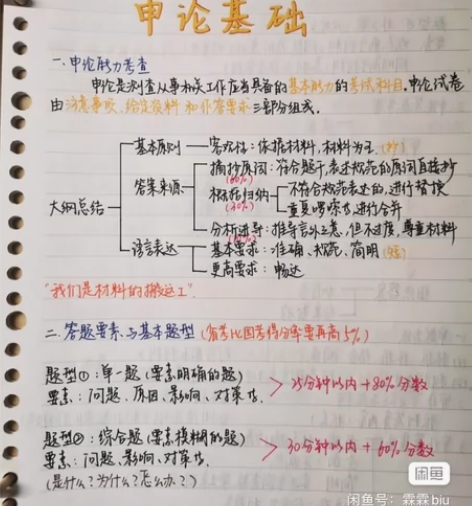 申论基础
一、申论能力考查
申论是测查从事机关工作应当具备的基本能力的考试科目。申论试卷
由注意事项、给定资料和作答要求三部分组成。
大纲总结
基本原则 — 客观性：依据材料，材料为王（抄）
答案来源
摘抄原词：符合题干，表述规范的原词直接抄
(60%)
概括归纳
(30%)
不符合规范表达的，进行替换
重复啰嗦，进行合并
分析推导：推导言外之意，但不过度，尊重材料
(10%)
语言表达
基本要求：准确、规范、简明
更高要求：畅达
“我们是材料的搬运工”.
二、答题要素与基本题型（省考比国考得分率要再高5%）
题型①：单一题（要素明确的题）
要素：问题、原因、影响、对策等.
> 15分钟以内 + 80%分数
题型②：综合题（要素模糊的题）
要素：问题、影响、对策等.
(是什么？为什么？怎么办？)
> 30分钟以内 + 60%分数
闲鱼
闲鱼号：霖霖biu